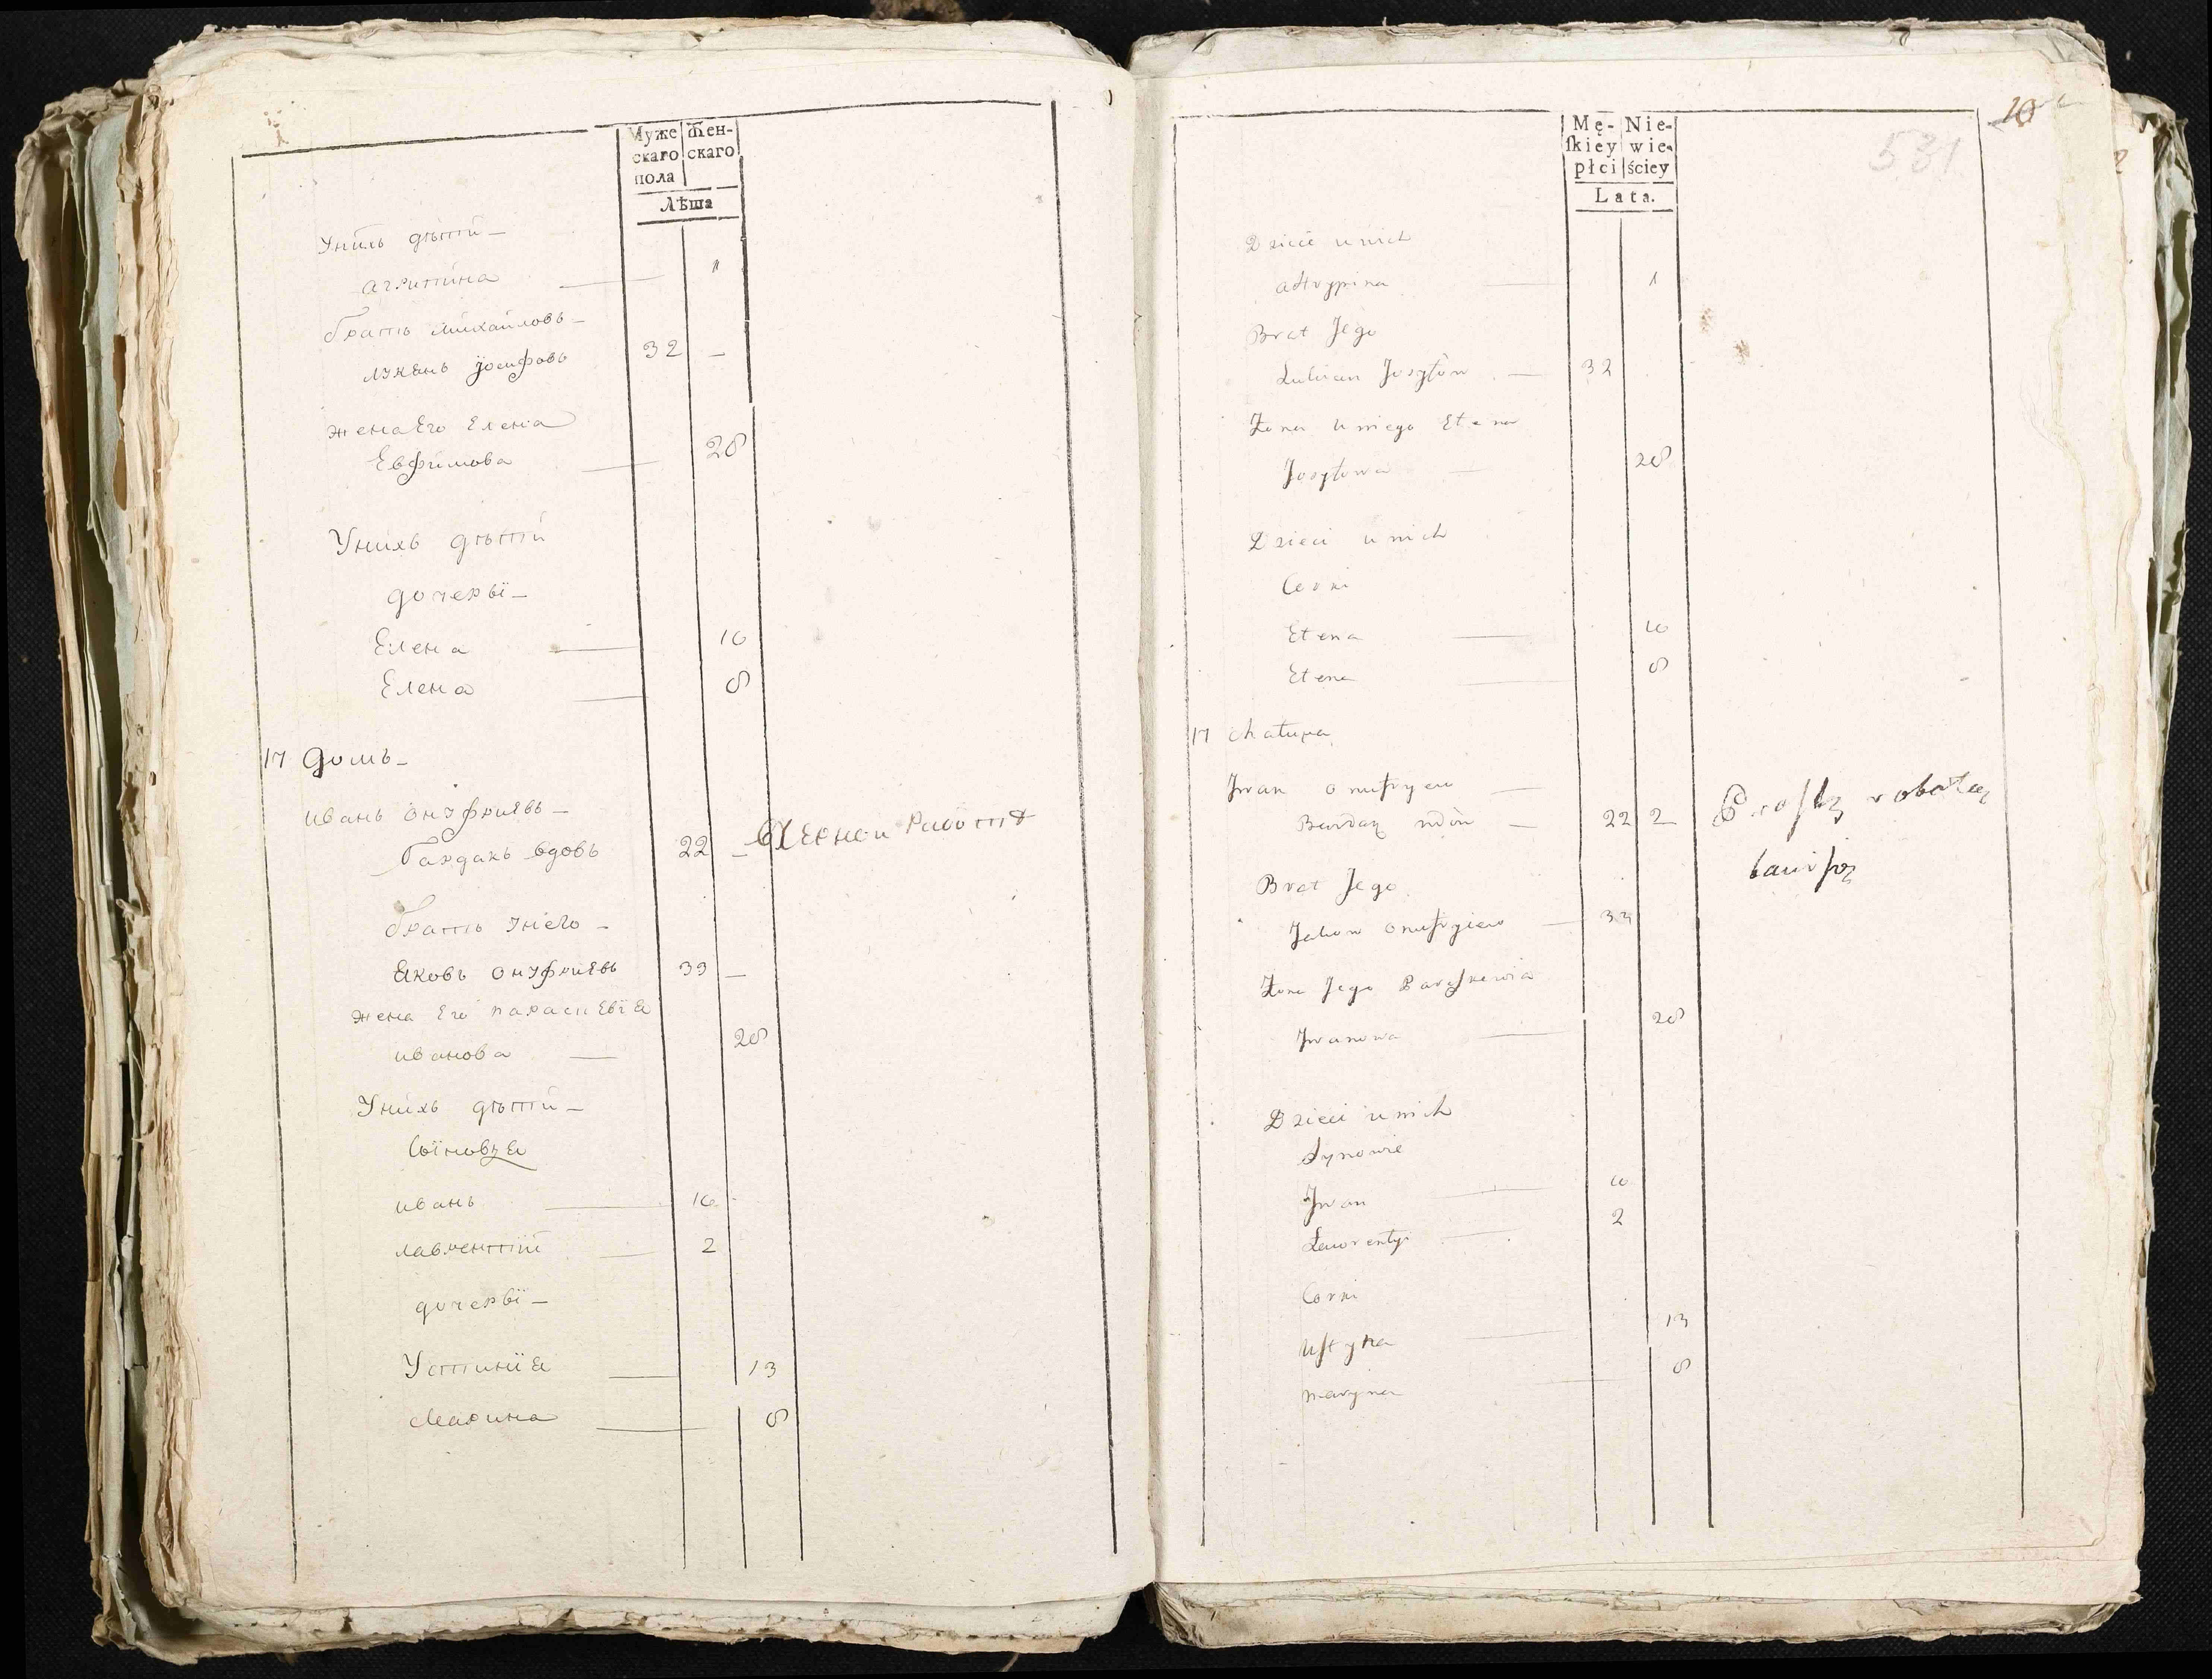 Муже Жен-
скаго скаго
пола
Лѣта
Унихъ дѣтїй
агрипина 1
братъ михайловъ
лукянъ иосифовъ 32
жена Его Елена
Евфимова 28
Унихъ дѣтїй
дочерьвї
Елена 10
Елена 8
17 домъ
иванъ онуфриевъ
бардакъ вдовъ 22 Черной работѣ
братъ унего
Яковъ онуфриевъ 33
жена Его параскевїя
иванова 28
Унихъ дѣтїй
сыновья
иванъ 10
лаврентїй 2
дочерьвї
Устинїя 13
Марина 8
10
531
Mę- Nie-
ſkiey wie-
płci ściey
Lata.
Dzieci u nich
aHrypina 1
Brat Jego
Lukian Jozyfow 32
Żona u niego Elena
Jozyfowa 28
Dzieci u nich
Corki
Elena 10
Elena 8
17 chałupa
Jwan Onufryew
Bardaq wdow 22 2 Proſtą robotą
bawi ſię
Brat Jego
Jakow Onufryiew 33
Żona Jego Paraſkewia
Jwanowa 28
Dzieci u nich
Synowie
Jwan 10
Ławrentyi 2
Corki
Uſtyna 13
maryna 8